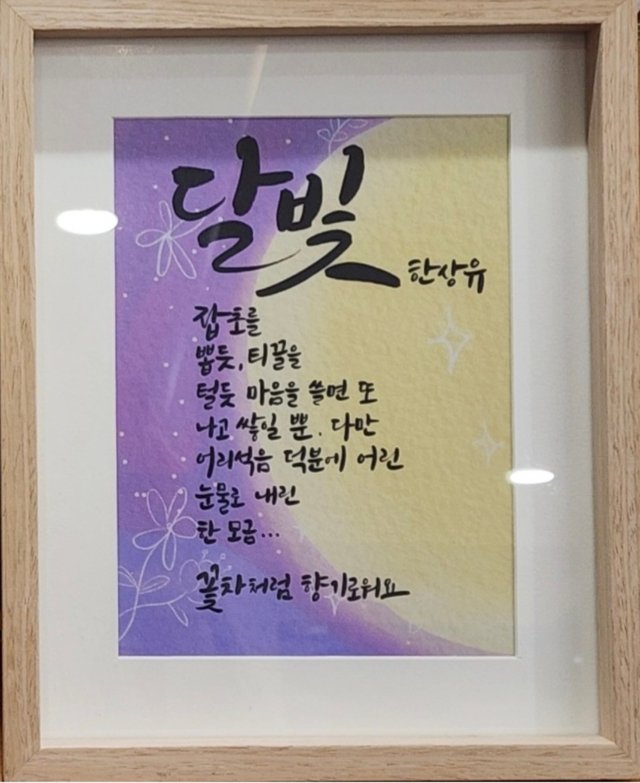 달빛
한상유
잡초를
뽑듯, 티끌을
털듯 마음을 쓸면 또
나고 쌓일 뿐. 다만
어리석음 덕분에 어린
눈물로 내린
한 모금...
꽃차처럼 향기로워요